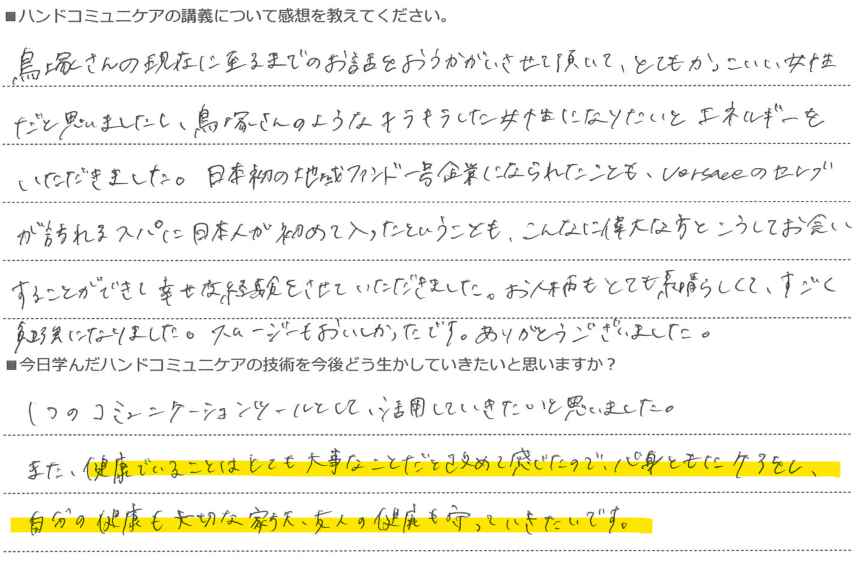 ■ハンドコミュニケアの講義について感想を教えてください。
鳥塚さんの現在に至るまでのお話をおうかがいさせて頂いて、とてもかっこいい女性
だと思いましたし、鳥塚さんのようなキラキラした女性になりたいとエネルギーを
いただきました。日本初の地域ファンド一号企業になられたことも、Versaceのセレブ
が訪れるスパに日本人が初めて入ったということも、こんなに偉大な方とこうしてお会い
することができて幸せな経験をさせていただきました。お人柄もとても素晴らしくて、すごく
勉強になりました。スムージーもおいしかったです。ありがとうございました。
■今日学んだハンドコミュニケアの技術を今後どう生かしていきたいと思いますか？
1つのコミュニケーションツールとして、活用していきたいと思いました。
また、健康でいることはとても大事なことだと改めて感じたので、心身ともにケアをし、
自分の健康も大切な家族、友人の健康も守っていきたいです。